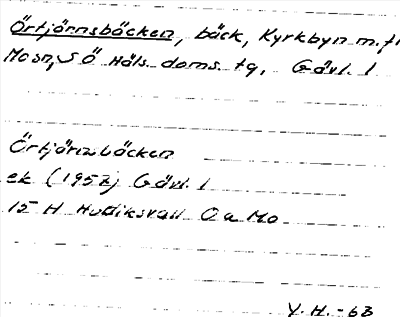 Örtjärnsbäcken, bäck, Kyrkbyn m.fl
Mo sn, S ö Häls. doms. tg, Gävl. l
Örtjärnsbäcken
ek (1957) Gävl. l
15 H Hudiksvall 0 a Mo
Y. H. - 63